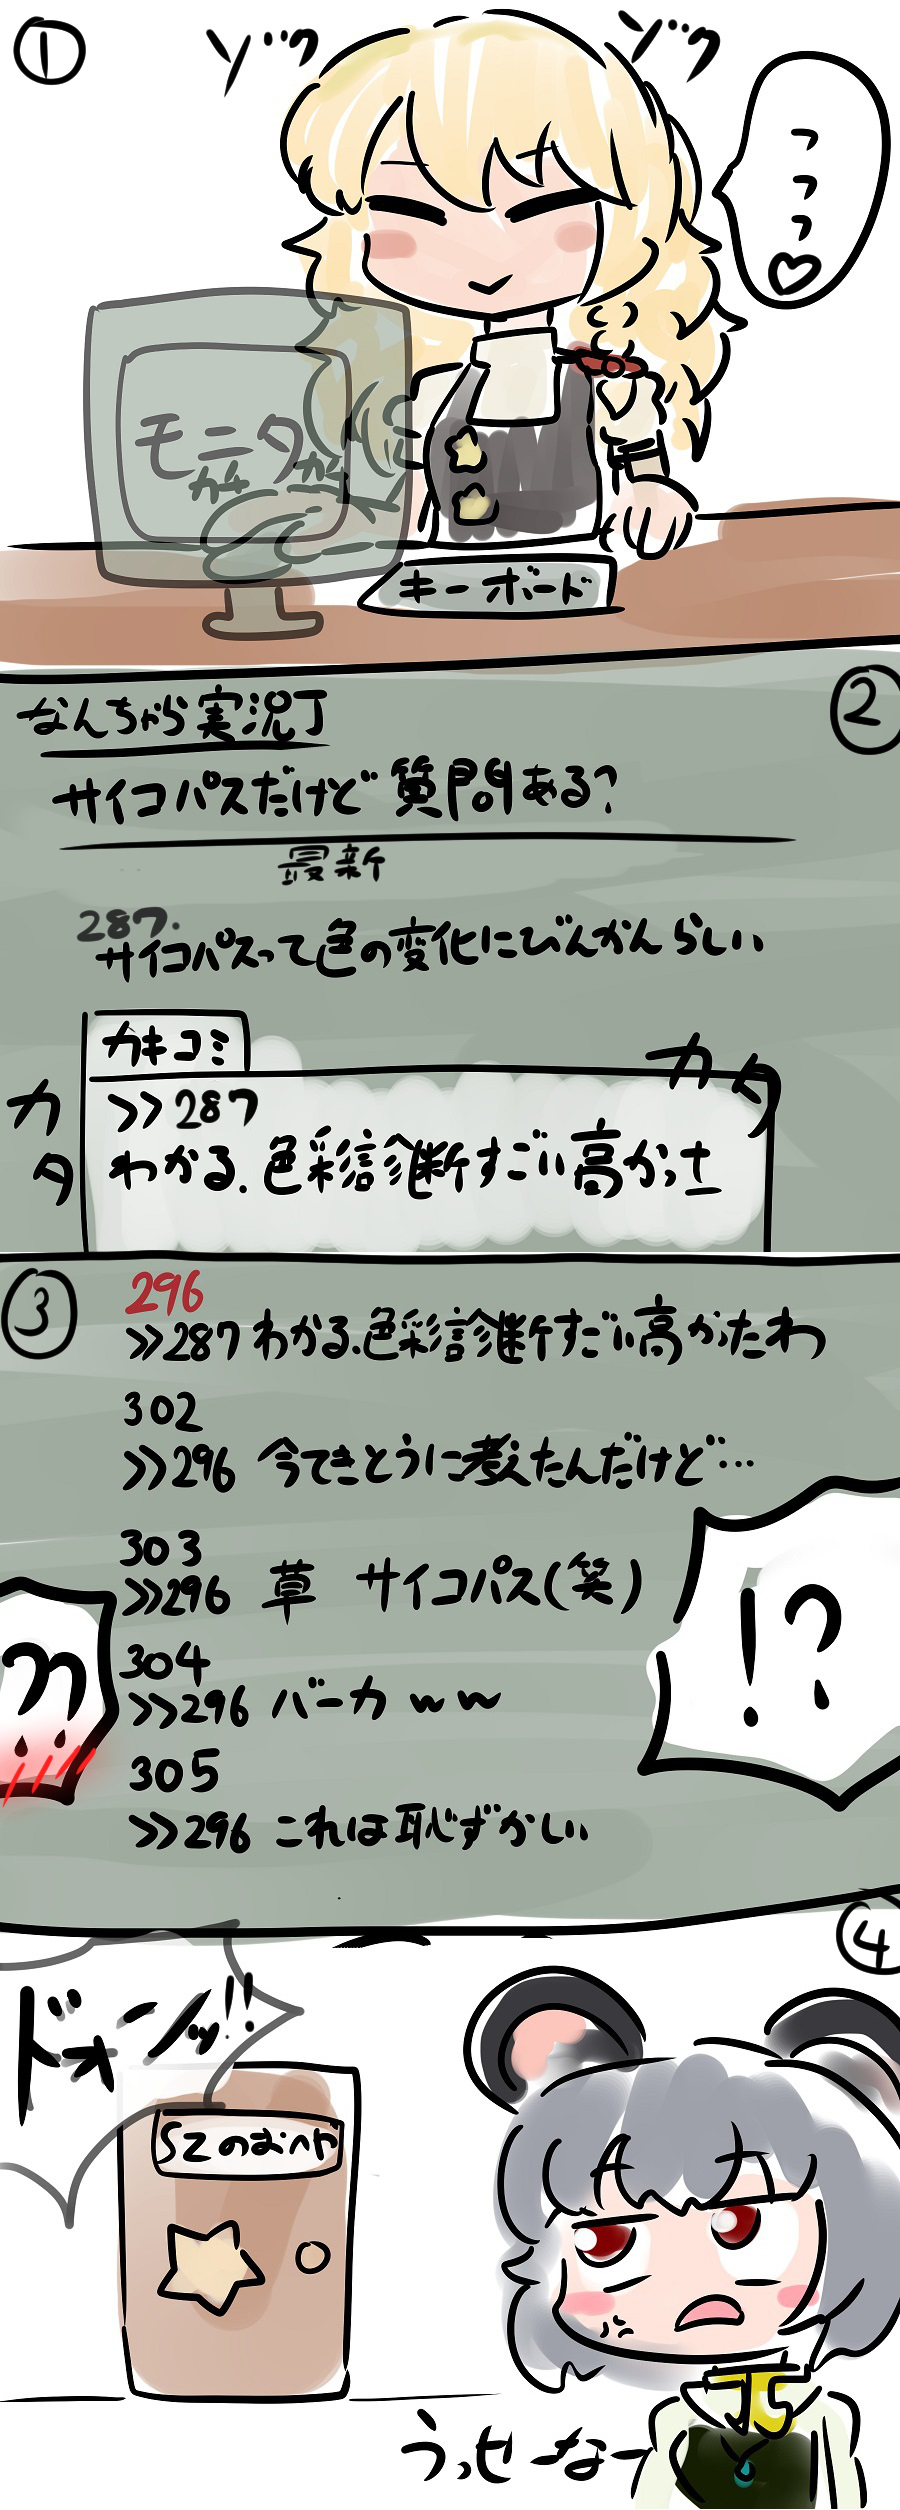 ①
ゾック
ゾック
フフフ♡
モニタ
カタ カタ
キーボード
②
なんちゃら実況丁
サイコパスだけど質問ある?
最新
287.
サイコパスって色の変化にびんかんらしい
カキコミ
>>287
わかる.色彩診断すごい高かっt
カタ
カタ
③
296
>>287 わかる.色彩診断すごい高かったわ
302
>>296 今てきとうに考えたんだけど…
303
>>296 草 サイコパス(笑)
304
>>296 バーカww
305
>>296 これは恥ずかしい
!?
④
ドォーンッ!!
SZのおへや
うっせーなー